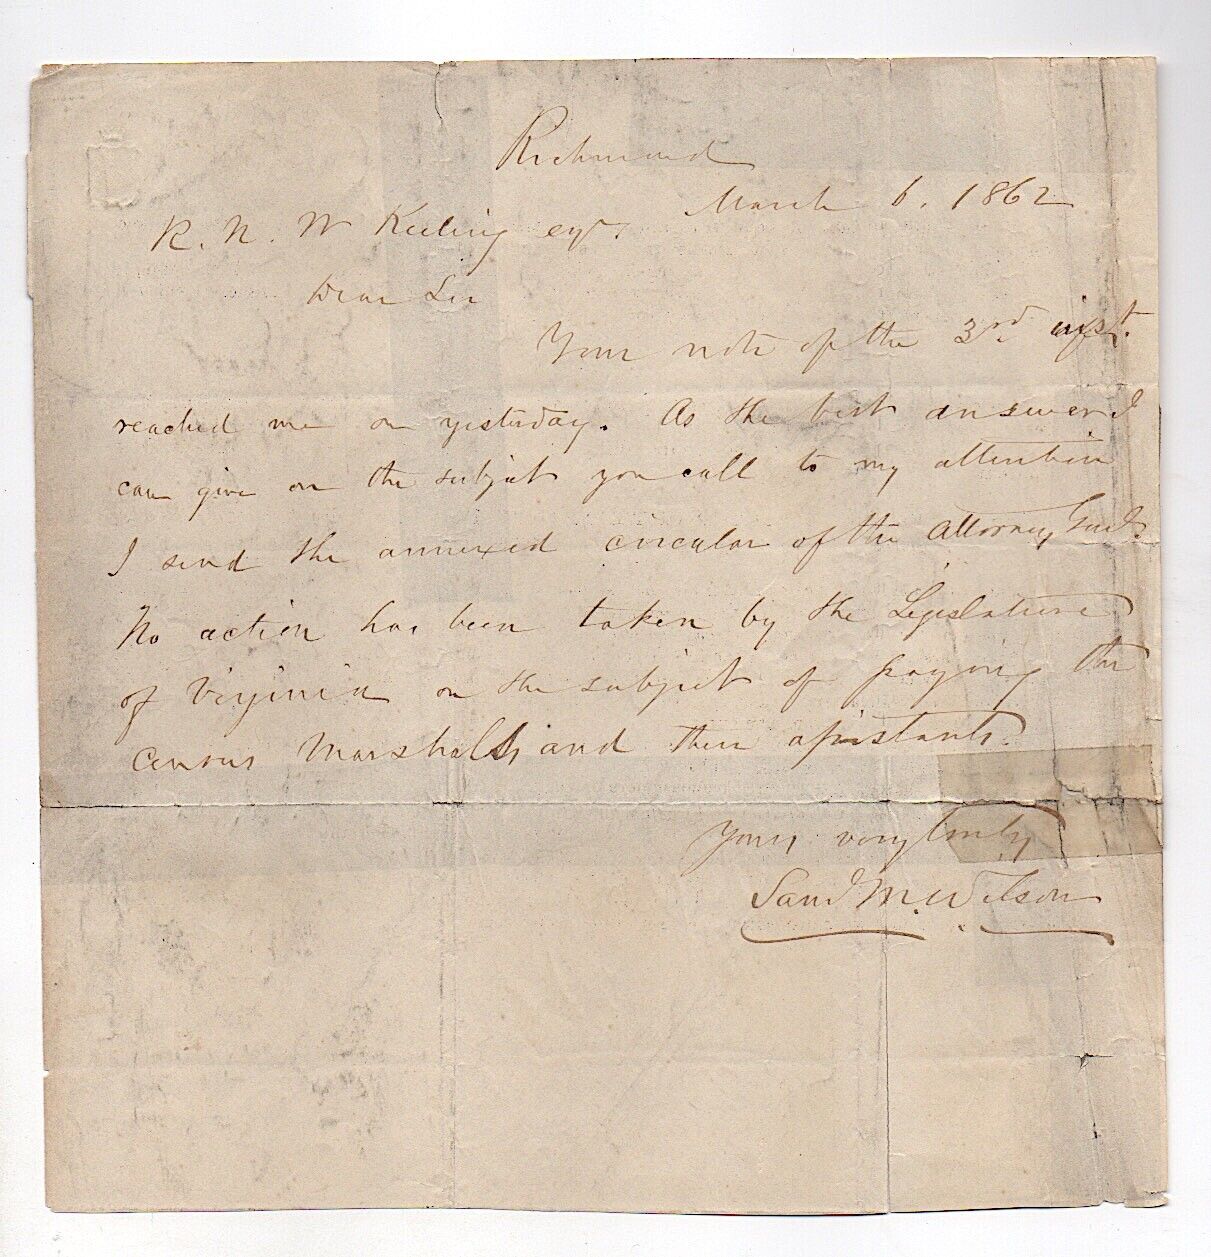 Richmond
March 6. 1862
R. N. W Keeling esqr.
Dear Sir
Your note of the 3rd inst.
reached me on yesterday. As the best answer I
can give on the subject you call to my attention
I send the annexed circular of the Attorney Genl.
No action has been taken by the Legislature
of Virginia on the subject of paying the
census Marshalls and their assistants.
Yours very truly
Saml M. Wilson